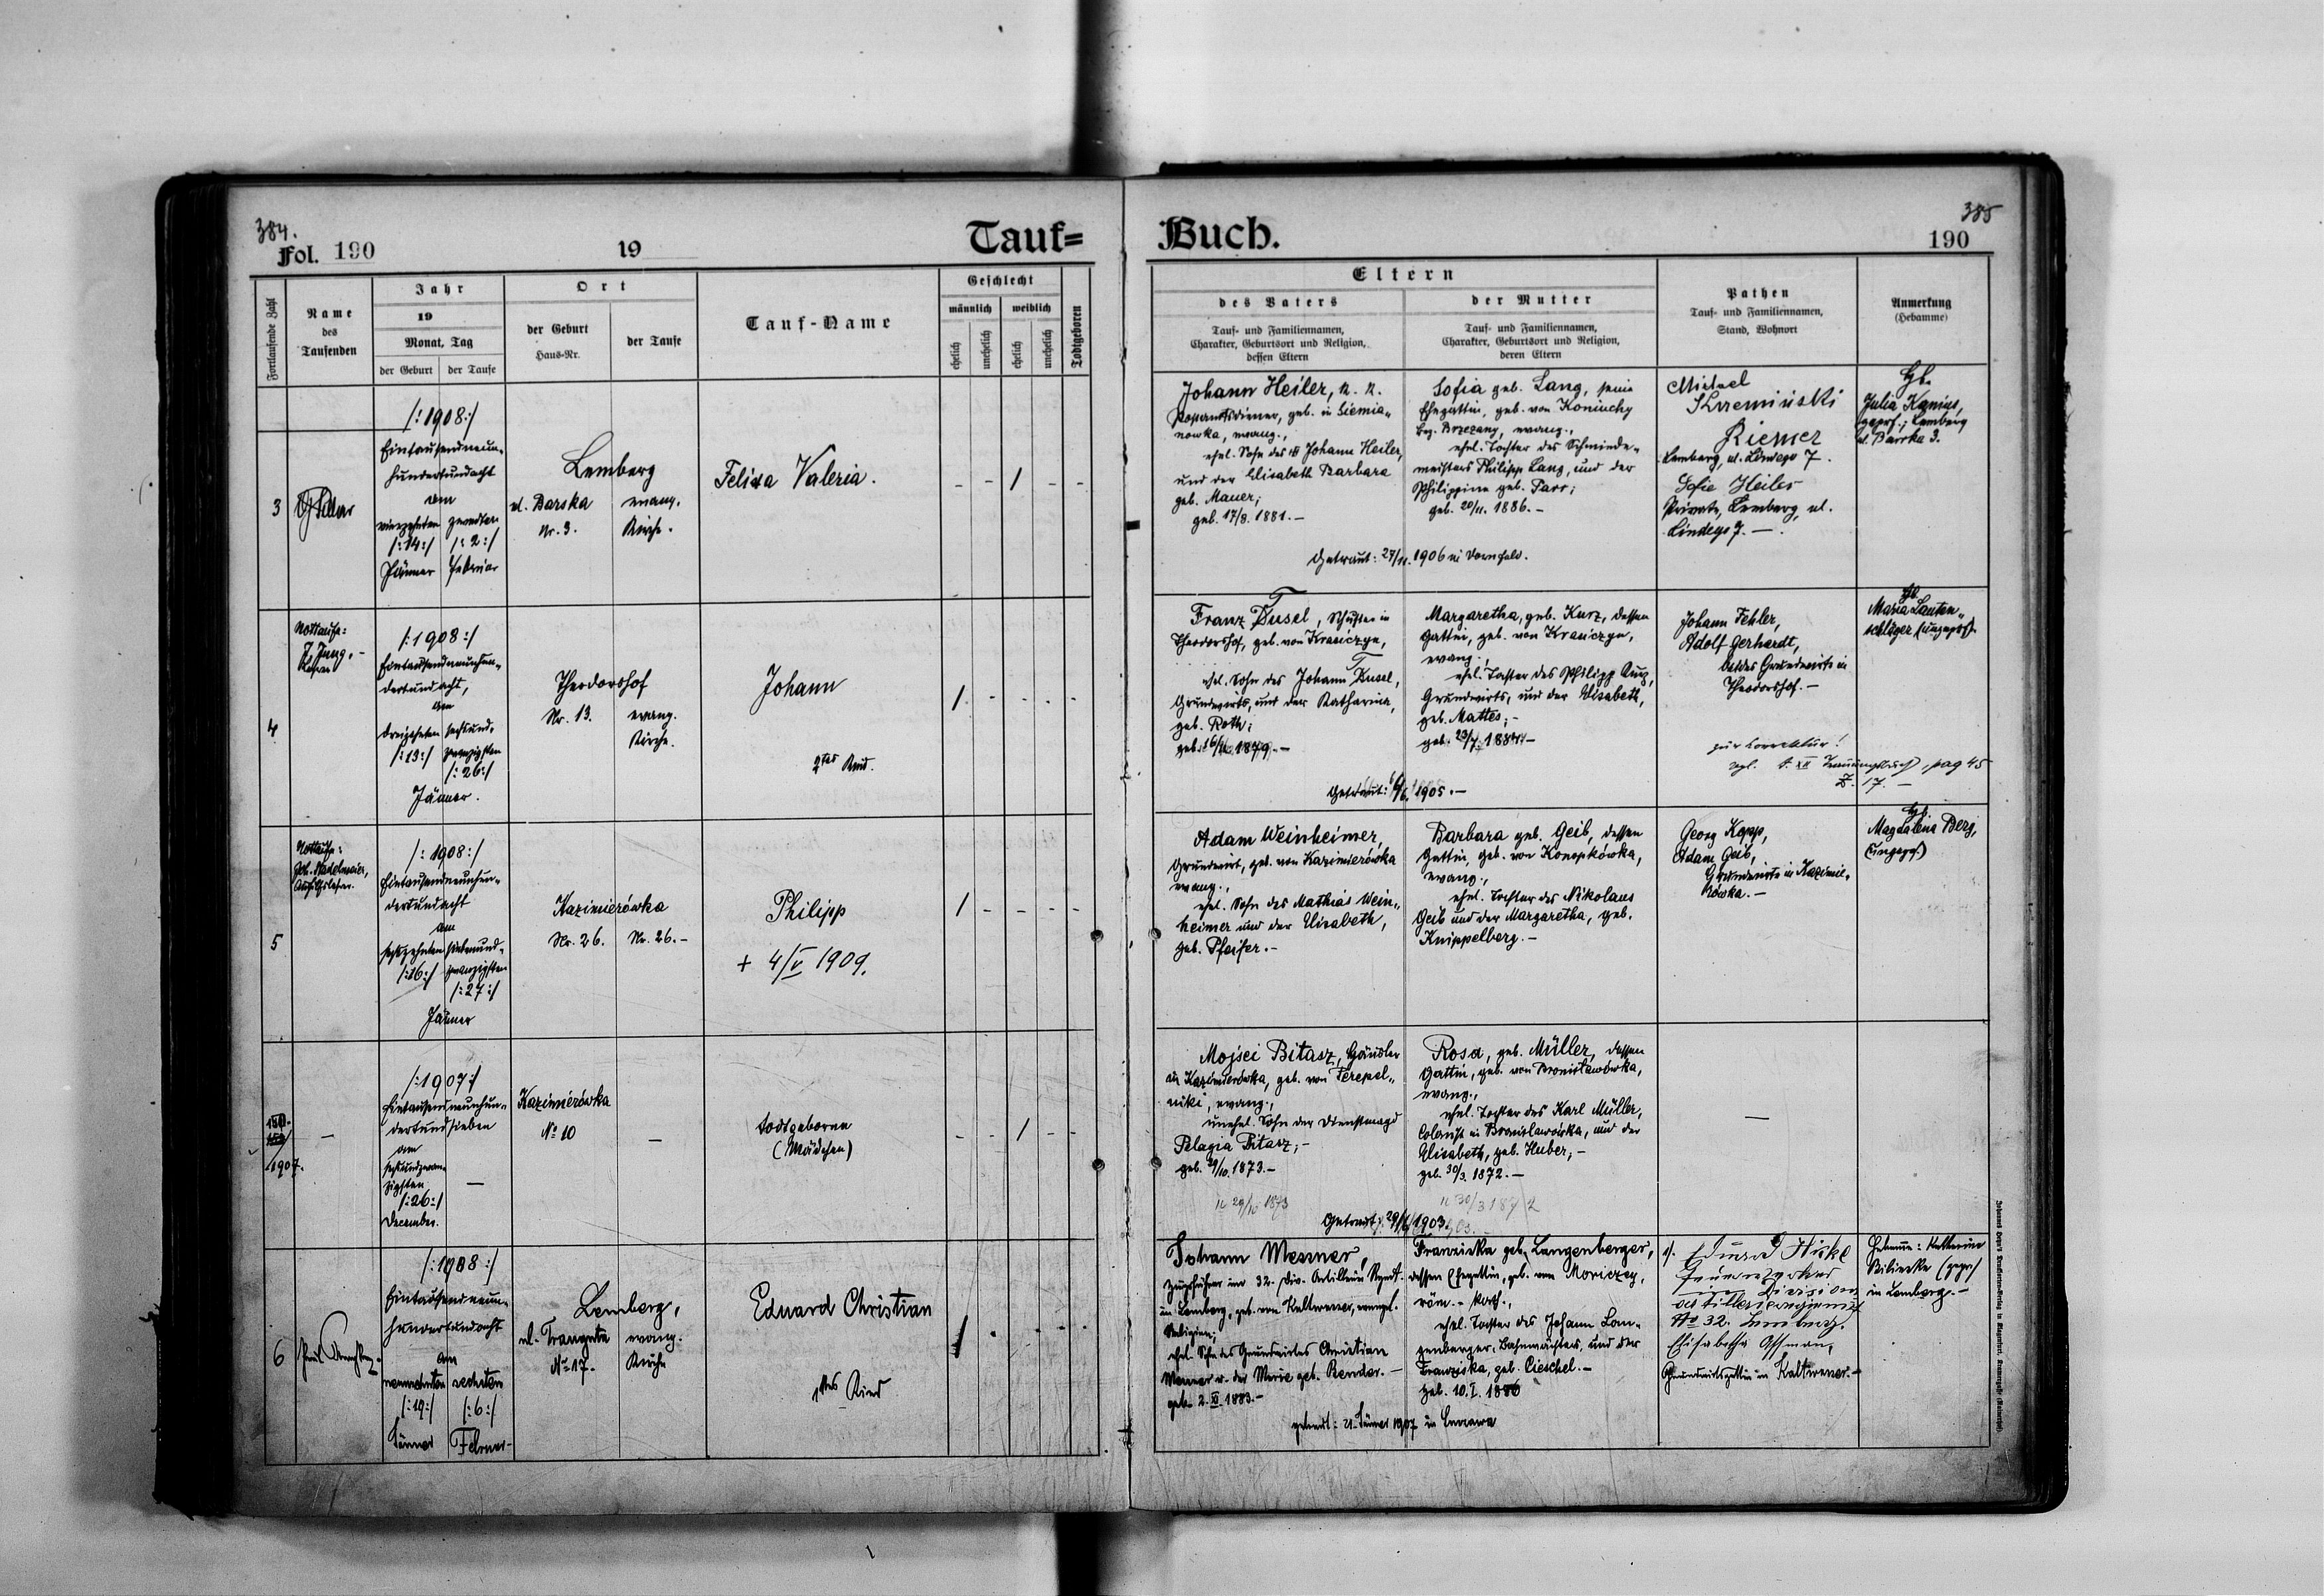 384.
Fol. 190
19
Tauf=
Fortlaufende Zahl
Name
des
Taufenden
Jahr
19
Monat, Tag
der Geburt
der Taufe
Ort
der Geburt
Haus-Nr.
der Taufe
Tauf-Name
Geschlecht
männlich
weiblich
ehelich
unehelich
ehelich
unehelich
Todtgeboren
3
/:1908:/
Eintausendneun-
hundertundacht
am
vierzehnten
/:14:/
Jänner
zweiten
/:2:/
Februar
Lemberg
ul. Barska
Nr. 3.
evang.
Kirche.
Felixa Valeria.
- - 1 - -
4
Nottaufe:
J. Jung,
/:1908:/
Eintausendneunhun-
dertundacht,
am
dreizehnten
/:13:/
sechsund-
zwanzigsten
/:26:/
Jänner.
Theodorshof
Nr. 13.
evang.
Kirche.
Johann
2tes Kind.
1 - - - -
5
Nottaufe:
Joh. Nadelmeier,
/:1908:/
Eintausendneunhun-
dertundacht
am
sechzehnten
/:16:/
siebenund-
zwanzigsten
/:27:/
Jänner
Kazimierówka
Nr. 26.
Nr. 26.-
Philipp
+ 4/V 1909.
1 - - - -
1907.
-
/:1907:/
Eintausendneunhun-
dertundsieben
am
sechsundzwan-
zigsten
/:26:/
December.
—
Kazimierówka
No 10
—
todtgeboren
(Mädchen)
- - 1 - -
6
/:1908:/
Eintausendneun-
hundertundacht
am
neunzehnten
/:19:/
Jänner
sechsten
/:6:/
Februar-
Lemberg,
ul.
No 17.
evang.
Kirche
Eduard Christian
1tes Kind
1 - - -
Buch.
385
190
Eltern
des Vaters
Tauf- und Familiennamen,
Charakter, Geburtsort und Religion,
dessen Eltern
der Mutter
Tauf- und Familiennamen,
Charakter, Geburtsort und Religion,
deren Eltern
Pathen
Tauf- und Familiennamen,
Stand, Wohnort
Anmerkung
(Hebamme)
Johann Heiler, k. k.
Postamtsdiener, geb. in Siemia-
nowka, evang.,
ehel. Sohn des Johann Heiler,
und der Elisabeth Barbara
geb. Mauer;
geb. 17/8. 1881.-
Sofia geb. Lang, seine
Ehegattin, geb. von Koniuchy
Bez. Brzezany, evang.,
ehel. Tochter des Schmiede-
meisters Philipp Lang, und der
Philippine geb. Parr;
geb. 20/11. 1886.-
Getraut: 27/11. 1906 in Dornfeld.
Michael
Skrzemiński
Riemer
Lemberg, ul. Lindego 7.
Sofie Heiler
Private, Lemberg, ul.
Lindego 7.-
Hb.
Julia Kanius,
geprf.; Lemberg
ul. Barska 3.
Franz Tusel, Schuster in
Theodorshof, geb. von Krasiczyn,
ehel. Sohn des Johann Tusel,
Grundwirts, und der Katharina,
geb. Roth;
geb. 16/11. 1879.-
Margaretha, geb. Kurz, dessen
Gattin, geb. von Krasiczyn,
evang.,
ehel. Tochter des Philipp Kurz,
Grundwirts, und der Elisabeth,
geb. Mattes;-
geb. 23/7. 1884.-
Getraut: 6/6. 1905.-
Johann Fehler,
Adolf Gerhardt,
beides Grundwirte in
Theodorshof.-
zur Correktur!
vgl. t. XII Trauungsbuch, pag 45
Z. 17.-
Hb.
Maria Lauten-
schläger (ungeprf).
Adam Weinheimer,
Grundwirt, geb. von Kazimierówka
evang.,
ehel. Sohn des Mathias Wein-
heimer und der Elisabeth,
geb. Pfeifer.-
Barbara geb. Geib, dessen
Gattin, geb. von Konopkówka,
evang.,
ehel. Tochter des Nikolaus
Geib und der Margaretha, geb.
Knippelberg.-
Georg Kopp,
Adam Geib,
Grundwirte in Kazimie-
rówka.-
Hb.
Magdalena Berg,
(ungeprf.)
Mojsei Bitasz, Häusler
in Kazimierówka, geb. von Perepel-
niki, evang.,
unehel. Sohn der Dienstmagd
Pelagia Bitasz;-
geb. 29/10. 1873.-
29/10 1873
Rosa, geb. Müller, dessen
Gattin, geb. von Bronisławówka,
evang.,
ehel. Tochter des Karl Müller,
Colonist in Bronisławówka, und der
Elisabeth, geb. Huber;-
geb. 30/3. 1872.-
30/3 1872
Getraut: 29/6 1903.
—
Johann Messner,
Zugsführer im 32. Div. Artillerie Regmt.
in Lemberg, geb. von Kaltwasser, evangel.
Religion;
ehel. Sohn des Grundwirtes Christian
Messner u. der Marie geb. Bender.-
geb. 2. XI. 1883.-
Franziska geb. Langenberger,
dessen Ehegattin, geb. von
röm.-kath.,
ehel. Tochter des Johann Lan-
genberger, Bahnwächters, und der
Franziska, geb. Cieschel.-
geb. 10. I. 1886
getraut: 21. Jänner 1907 in
Eduard
Division
Artillerieregiment
No 32. Lemberg.
Elisabetha
Grundwirtsgattin in Kaltwasser.-
Hebamme: Katharina
(gepr)
in Lemberg.-